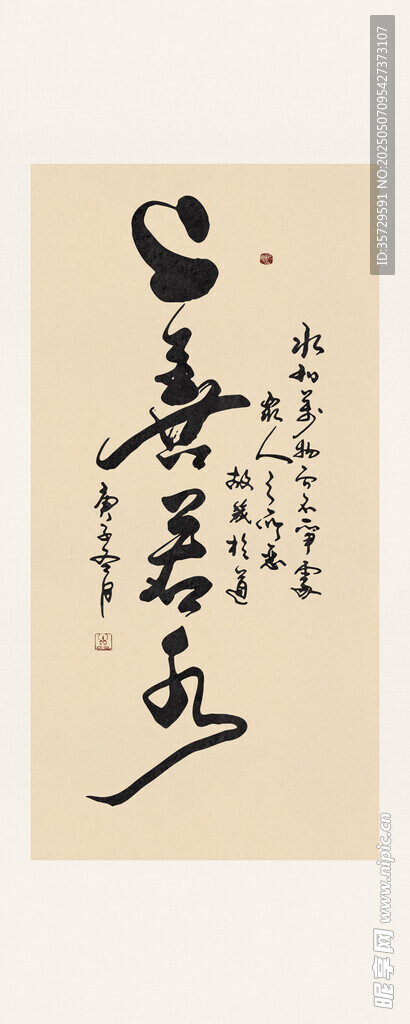 上善若水
水利万物而不争处
众人之所恶
故几于道
庚子冬月
ID:35729591 NO:20250507095427373107
昵享网 www.nipic.cn